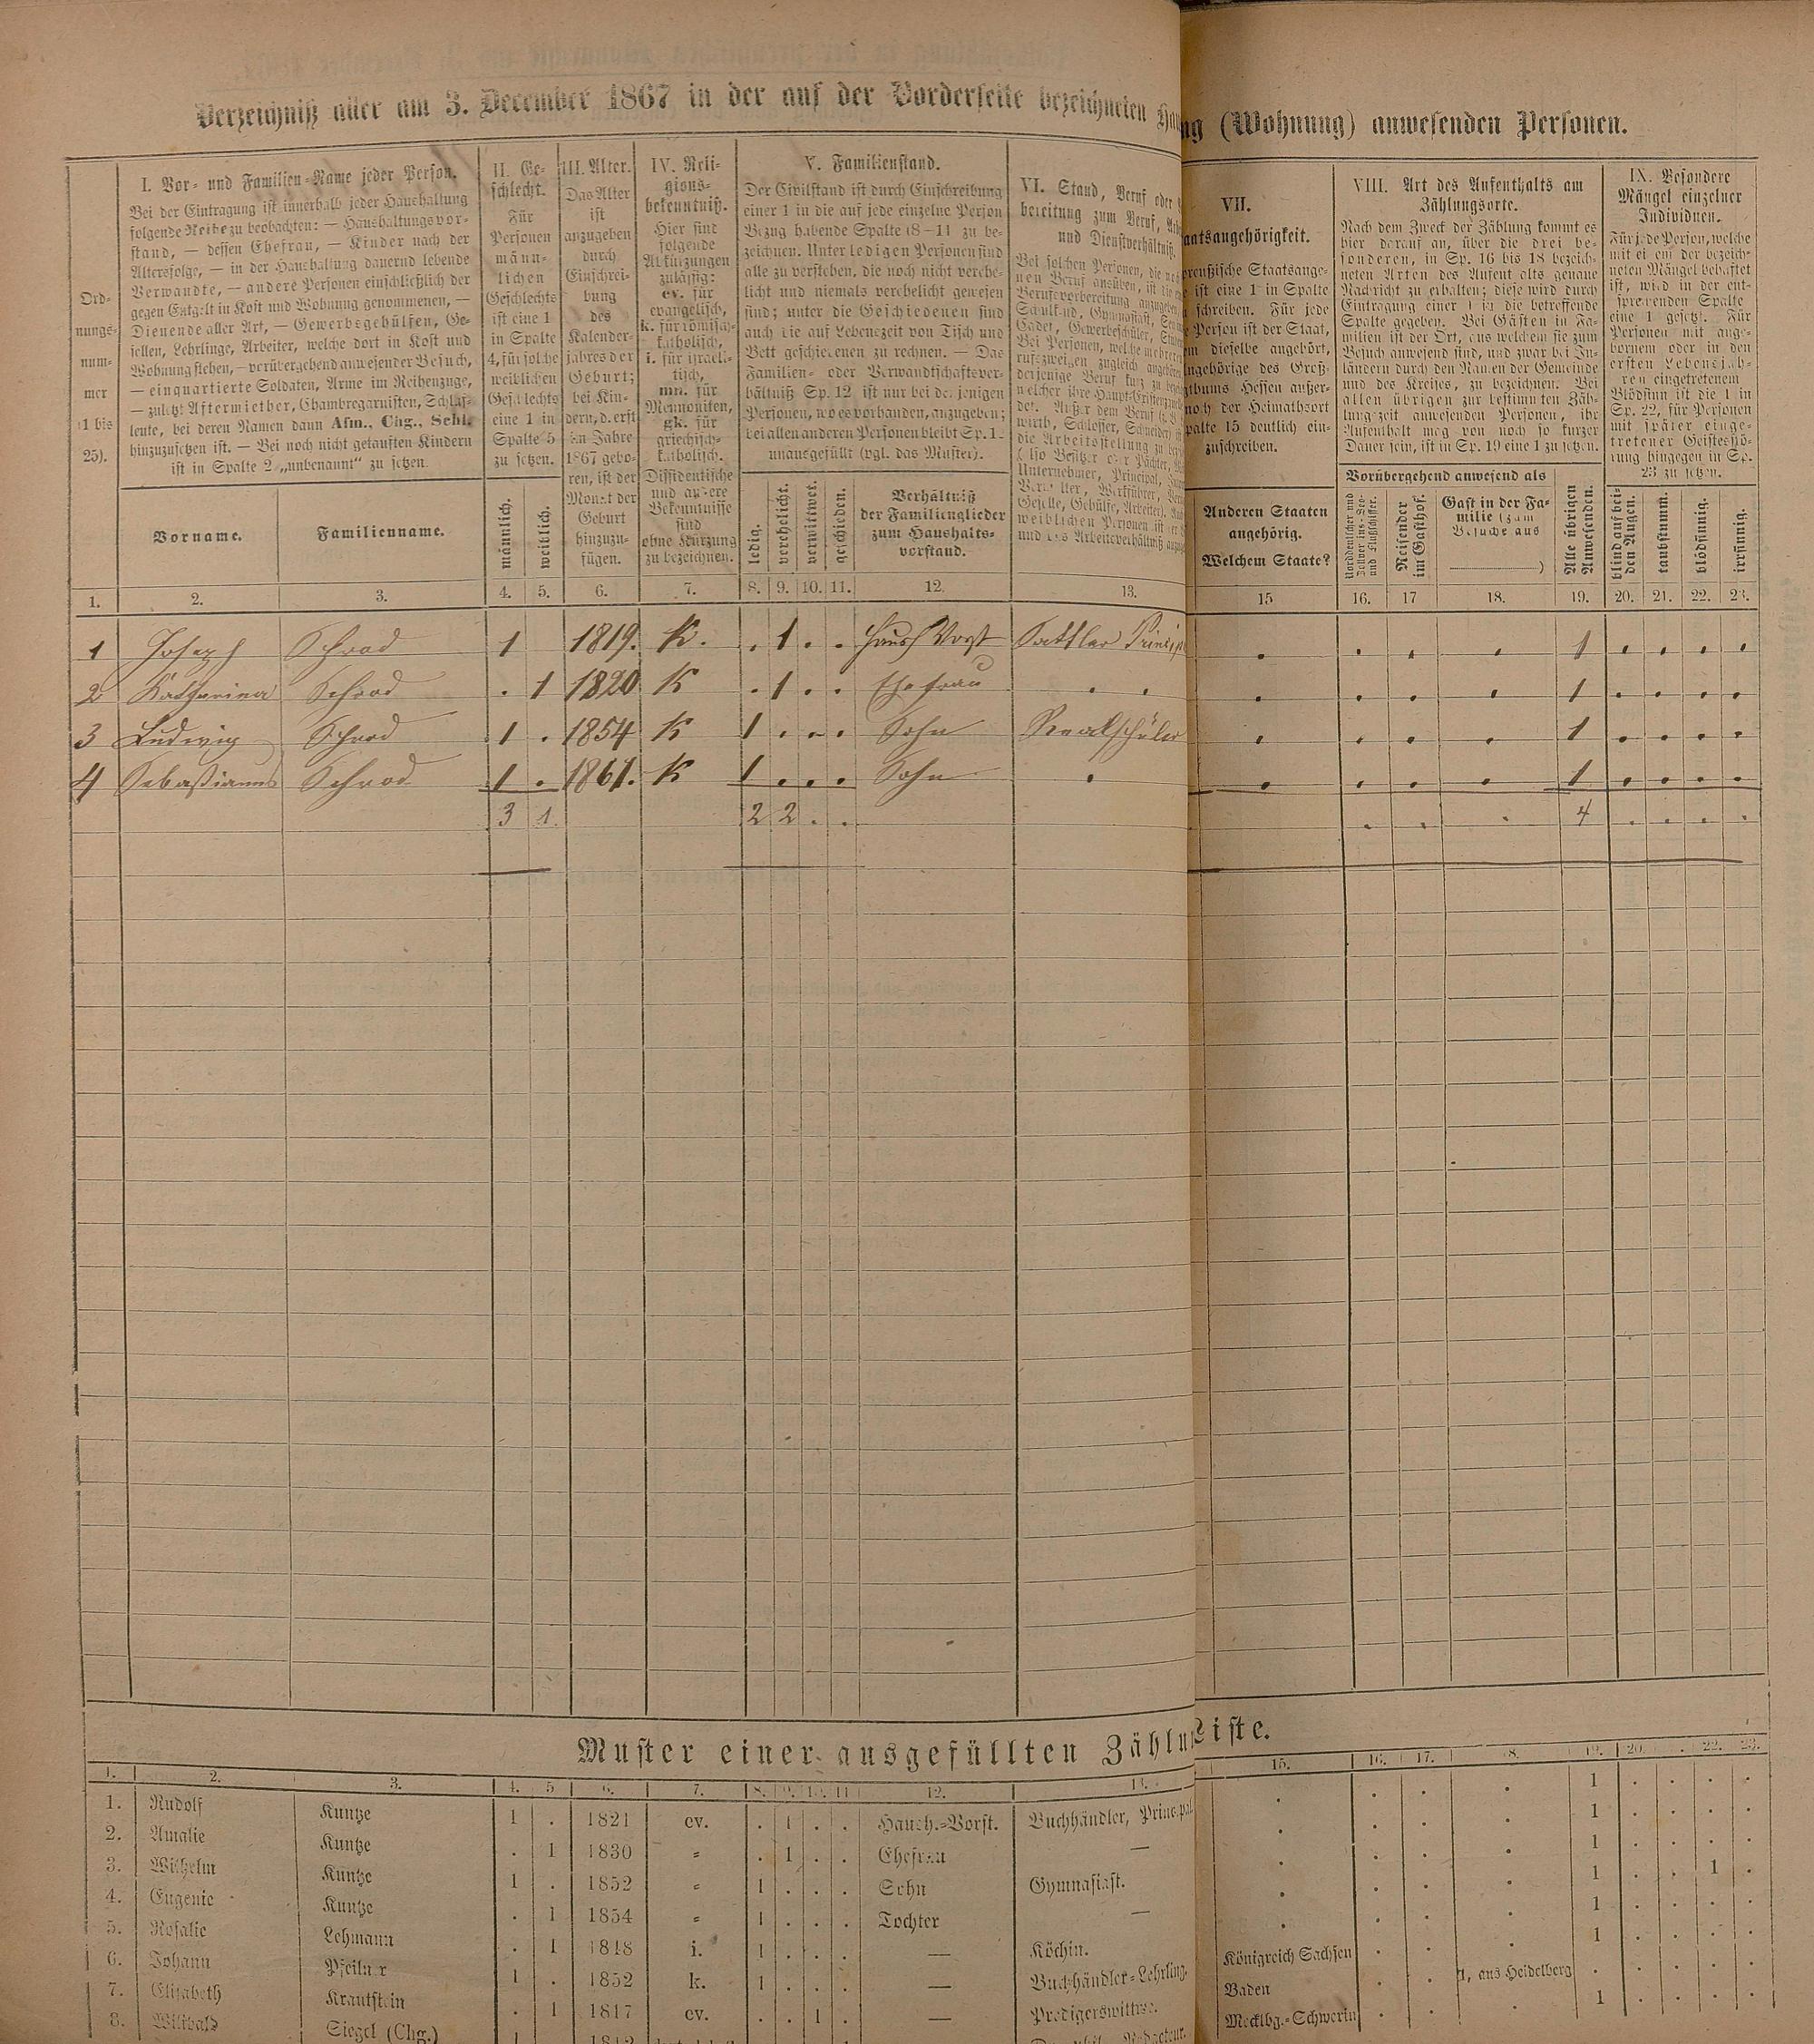 Verzeichniß aller am 3. December 1867 in der auf der Vorderseite bezeichneten
(Wohnung) anwesenden Personen.
Ord-
nungs-
num-
mer
(1 bis
25).
I. Vor- und Familien-Name jeder Person.
Bei der Eintragung ist innerhalb jeder Haushaltung
folgende Reihe zu beobachten: — Haushaltungsvor-
stand, — dessen Ehefrau, — Kinder nach der
Altersfolge, — in der Haushaltung dauernd lebende
Verwandte, — andere Personen einschließlich der
gegen Entgelt in Kost und Wohnung genommenen, —
Dienende aller Art, — Gewerbsgehülfen, Ge-
sellen, Lehrlinge, Arbeiter, welche dort in Kost und
Wohnung stehen, — vorübergehend anwesender Besuch,
— einquartierte Soldaten, Arme im Reihenzuge,
— zuletzt Aftermiether, Chambregarnisten, Schlaf-
leute, bei deren Namen dann Afm., Chg., Schl.
hinzuzusetzen ist. — Bei noch nicht getauften Kindern
ist in Spalte 2 „unbenannt“ zu setzen.
Vorname.
Familienname.
II. Ge-
schlecht.
Für
Personen
männ-
lichen
Geschlechts
ist eine 1
in Spalte
4, für solche
weiblichen
Geschlechts
eine 1 in
Spalte 5
zu setzen.
männlich.
weiblich.
III. Alter.
Das Alter
ist
anzugeben
durch
Einschrei-
bung
des
Kalender-
jahres der
Geburt;
bei Kin-
dern, d. erst
im Jahre
1867 gebo-
ren, ist der
Monat der
Geburt
hinzuzu-
fügen.
IV. Reli-
gions-
bekenntniß.
Hier sind
folgende
Abkürzungen
zulässig:
ev. für
evangelisch,
k. für römisch-
katholisch,
i. für israeli-
tisch,
mn. für
Mennoniten,
gk. für
griechisch-
katholisch.
Dissidentische
und andere
Bekenntnisse
sind
ohne Kürzung
zu bezeichnen.
V. Familienstand.
Der Civilstand ist durch Einschreibung
einer 1 in die auf jede einzelne Person
Bezug habende Spalte (8–11) zu be-
zeichnen. Unter ledigen Personen sind
alle zu verstehen, die noch nicht verehe-
licht und niemals verehelicht gewesen
sind; unter die Geschiedenen sind
auch die auf Lebenszeit von Tisch und
Bett geschiedenen zu rechnen. — Das
Familien- oder Verwandtschaftsver-
hältniß Sp. 12 ist nur bei denjenigen
Personen, wo es vorhanden, anzugeben;
bei allen anderen Personen bleibt Sp. 12
unausgefüllt (vgl. das Muster).
ledig.
verehelicht.
verwittwet.
geschieden.
Verhältniß
der Familienglieder
zum Haushalts-
vorstand.
VI. Stand, Beruf oder
bereitung zum Beruf,
und Dienstverhältniß.
VII.
preußische Staatsange-
ist eine 1 in Spalte
schreiben. Für jede
Person ist der Staat,
dieselbe angehört,
Hessen außer-
noch der Heimathsort
Spalte 15 deutlich ein-
zuschreiben.
Anderen Staaten
angehörig.
Welchem Staate?
VIII. Art des Aufenthalts am
Zählungsorte.
Nach dem Zweck der Zählung kommt es
hier darauf an, über die drei be-
sonderen, in Sp. 16 bis 18 bezeich-
neten Arten des Aufenthalts genaue
Nachricht zu erhalten; diese wird durch
Eintragung einer 1 in die betreffende
Spalte gegeben. Bei Gästen in Fa-
milien ist der Ort, aus welchem sie zum
Besuch anwesend sind, und zwar bei In-
ländern durch den Namen der Gemeinde
und des Kreises, zu bezeichnen. Bei
allen übrigen zur bestimmten Zäh-
lungszeit anwesenden Personen, ihr
Aufenthalt mag von noch so kurzer
Dauer sein, ist in Sp. 19 eine 1 zu setzen.
Vorübergehend anwesend als
Reisender
im Gasthof.
Gast in der Fa-
milie (zum
Besuche aus
)
Alle übrigen
Anwesenden.
IX. Besondere
Mängel einzelner
Individuen.
Für jede Person, welche
mit einem der bezeich-
neten Mängel behaftet
ist, wird in der ent-
sprechenden Spalte
eine 1 gesetzt. Für
Personen mit ange-
bornem oder in den
ersten Lebensjah-
ren eingetretenem
Blödsinn ist die 1 in
Sp. 22, für Personen
mit später einge-
tretener Geistesstö-
rung hingegen in Sp.
23 zu setzen.
blind auf bei-
den Augen.
taubstumm.
blödsinnig.
irrsinnig.
1. 2. 3. 4. 5. 6. 7. 8. 9. 10. 11. 12. 13. 15 16. 17 18. 19. 20. 21. 22. 23.
1 Joseph Schrod 1 1819. K. . 1 . . Haush Vorst Sattler . . . . 1 . . . .
2 Katharina Schrod . 1 1820 K . 1 . . Ehefrau . . . . . . 1 . . . .
3 Ludwig Schrod 1 . 1854 K 1 . . . Sohn Realschüler . . . . 1 . . . .
4 Sebastianus Schrod 1 . 1861. K 1 . . . Sohn . . . . . 1 . . . .
3 1. 2 2 . . . . . 4 . . . .
Muster einer ausgefüllten
Liste.
1. 2. 3. 4. 5 6. 7. 8. 11 12. 15. 16. 17. 22. 23.
1. Rudolf Kuntze 1 . 1821 ev. . 1 . . Haush.-Vorst. Buchhändler, Principal . . . . 1 . . . .
2. Amalie Kuntze . 1 1830 „ . 1 . . Ehefrau — . . . . 1 . . . .
3. Wilhelm Kuntze 1 . 1852 „ 1 . . . Sohn Gymnasiast. . . . . 1 . . . .
4. Eugenie Kuntze . 1 1854 „ 1 . . . Tochter — . . . . 1 . . 1 .
5. Rosalie Lehmann . 1 1848 i. 1 . . . — Köchin. . . . . 1 . . . .
6. Johann Pfeilner 1 . 1852 k. 1 . . . — Buchhändler-Lehrling. Königreich Sachsen . . . 1 . . . .
7. Elisabeth Krautstein . 1 1817 ev. . . 1 . — Predigerswittwe. Baden . . 1, aus Heidelberg . . . . .
8. Willibald Siegel (Chg.) 1 1812 Mecklbg.-Schwerin . . . 1 . . . .